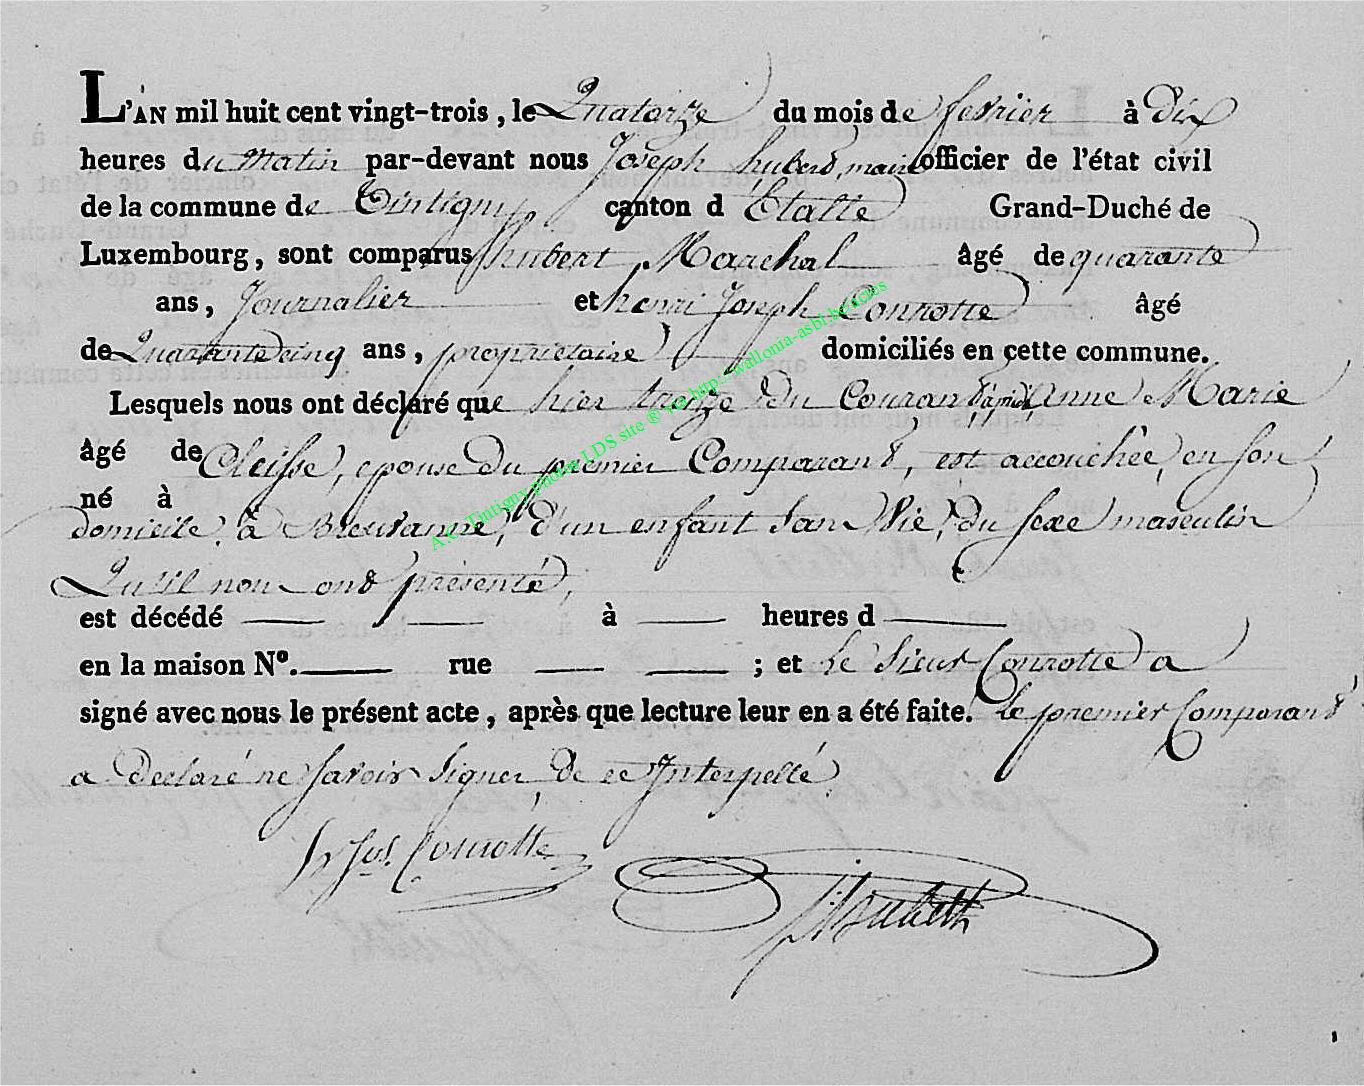 L'AN mil huit cent vingt-trois, le Quatorze du mois de fevrier à Dix
heures du Matin par-devant nous Joseph hubert, maire officier de l'état civil
de la commune de Tintigny canton d'Etalle Grand-Duché de
Luxembourg, sont comparus hubert Marchal âgé de quarante
ans, Journalier et henri Joseph Conrotte âgé
de Quarante cinq ans, propriétaire domiciliés en cette commune.
Lesquels nous ont déclaré que hier treize du Courant Anne Marie
âgé de Cleisse, epouse du premier Comparant, est accouchée, en son
né à
domicile, à Breuvanne, d'un enfant san Vie, du sexe masculin
Qu'il nous ont présenté,
est décédé — à — heures d —
en la maison N°. — rue — — ; et le sieur Conrotte a
signé avec nous le présent acte, après que lecture leur en a été faite. Le premier Comparant
a declaré ne savoir signer de ce Interpellé
h Jos. Conrotte
A.C. Tintigny photos LDS site ® via http://wallonia-asbl.be/actes